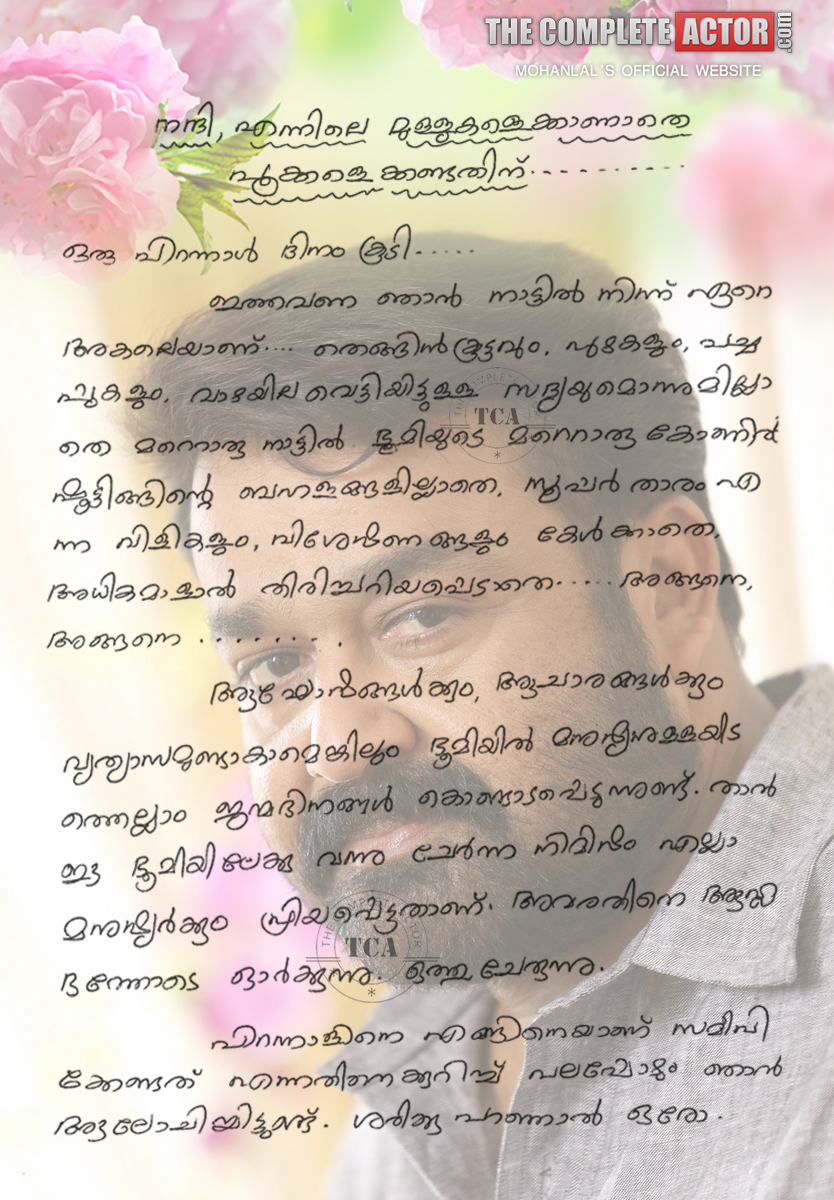 THE COMPLETE ACTOR .com
MOHANLAL'S OFFICIAL WEBSITE
നന്ദി, എന്നിലെ മുള്ളുകളെക്കാണാതെ
പൂക്കളെ ക്കണ്ടതിന്...........
ഒരു പിറന്നാൾ ദിനം കൂടി.....
ഇത്തവണ ഞാൻ നാട്ടിൽ നിന്ന് ഏറെ
അകലെയാണ്.... തെങ്ങിൻകൂട്ടവും, പുഴകളും, പച്ച
പ്പുകളും, വാഴയില വെട്ടിയിട്ടുള്ള സദ്യയുമൊന്നുമില്ലാ
തെ മറ്റൊരു നാട്ടിൽ ഭൂമിയുടെ മറ്റൊരു കോണിൽ
ഷൂട്ടിങ്ങിന്റെ ബഹളങ്ങളില്ലാതെ, സൂപ്പർ താരം എ
ന്ന വിളികളും, വിശേഷണങ്ങളും കേൾക്കാതെ,
അധികമാളാൽ തിരിച്ചറിയപ്പെടാതെ..... അങ്ങനെ,
അങ്ങനെ ........ .
ആഘോഷങ്ങൾക്കും, ആചാരങ്ങൾക്കും
വ്യത്യാസമുണ്ടാകാമെങ്കിലും ഭൂമിയിൽ മനുഷ്യനുള്ളയിട
ത്തെല്ലാം ജന്മദിനങ്ങൾ കൊണ്ടാടപ്പെടുന്നുണ്ട്. താൻ
ഈ ഭൂമിയിലേക്കു വന്നു ചേർന്ന നിമിഷം എല്ലാ
മനുഷ്യർക്കും പ്രിയപ്പെട്ടതാണ്. അവരതിനെ ആഹ്ലാ
ദത്തോടെ ഓർക്കുന്നു. ഒത്തുചേരുന്നു.
പിറന്നാളിനെ എങ്ങിനെയാണ് സമീപി
ക്കേണ്ടത് എന്നതിനെക്കുറിച്ച് പലപ്പോഴും ഞാൻ
ആലോചിച്ചിട്ടുണ്ട്. ശരിക്കു പറഞ്ഞാൽ ഒരോ.
TCA
TCA